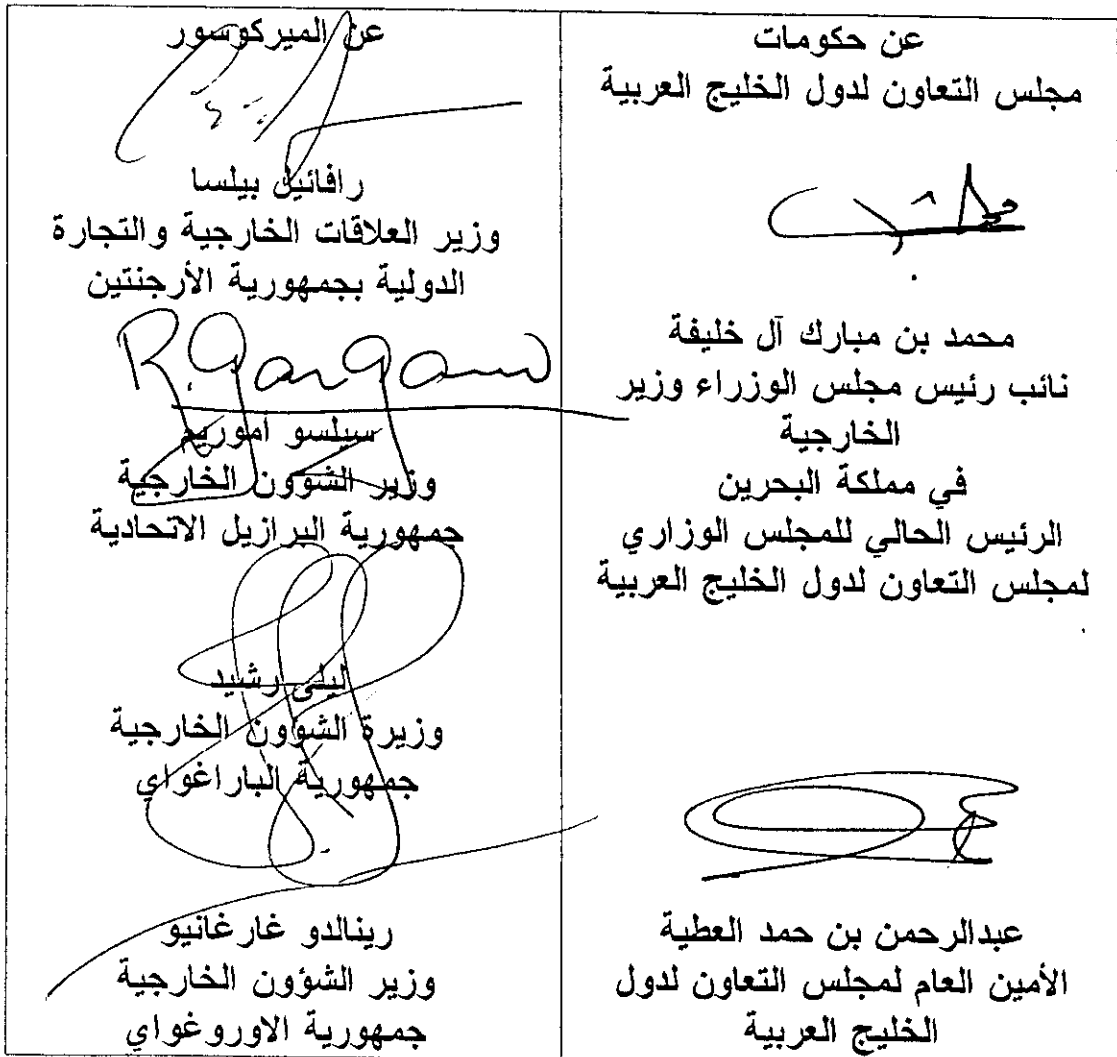 عن حكومات
مجلس التعاون لدول الخليج العربية
محمد بن مبارك آل خليفة
نائب رئيس مجلس الوزراء وزير
الخارجية
في مملكة البحرين
الرئيس الحالي للمجلس الوزاري
لمجلس التعاون لدول الخليج العربية
عبدالرحمن بن حمد العطية
الأمين العام لمجلس التعاون لدول
الخليج العربية
عن الميركوسور
رافائيل بيلسا
وزير العلاقات الخارجية والتجارة
الدولية بجمهورية الأرجنتين
R. Gargano
سيلسو أموريم
وزير الشؤون الخارجية
جمهورية البرازيل الاتحادية
ليلى رشيد
وزيرة الشؤون الخارجية
جمهورية الباراغواي
رينالدو غارغانيو
وزير الشؤون الخارجية
جمهورية الاوروغواي